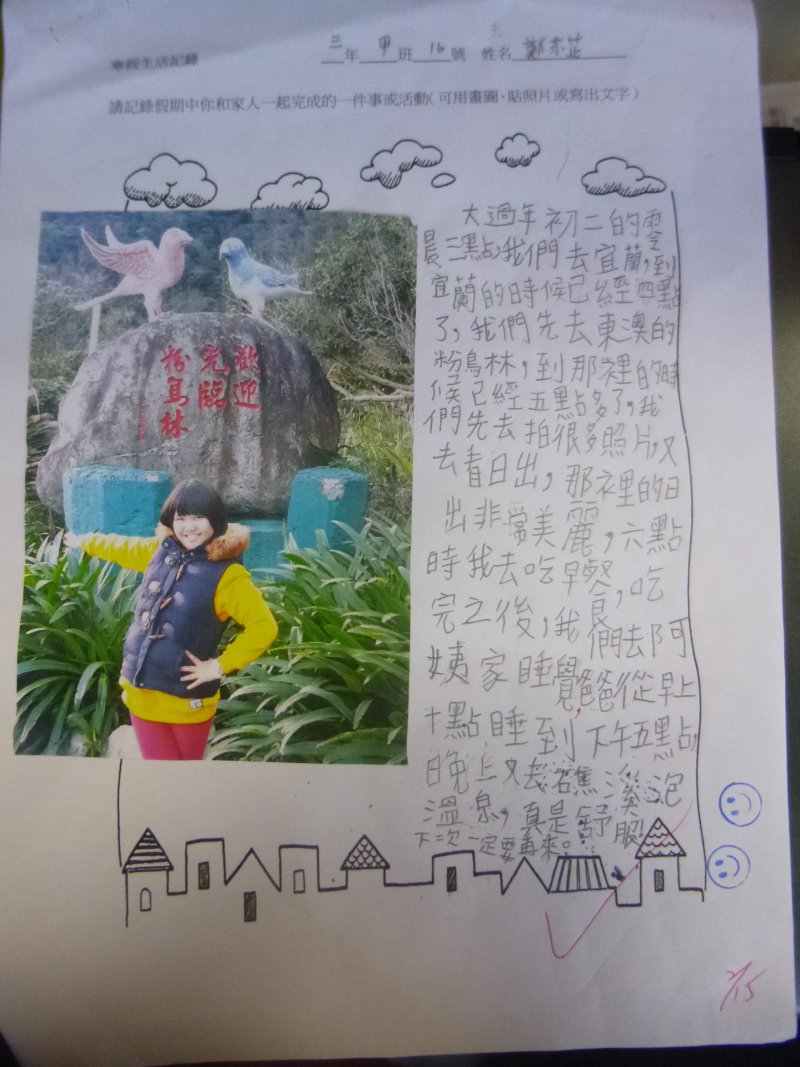 寒假生活記錄
三年甲班16號 姓名鄭亦芷
請記錄假期中你和家人一起完成的一件事或活動(可用畫圖、貼照片或寫出文字)
歡迎
光臨
粉鳥林
大過年初二的零
晨三點,我們去宜蘭,到
宜蘭的時候已經四點
了,我們先去東澳的
粉鳥林,到那裡的時
候已經五點多了,我
們先去拍很多照片,又
去看日出,那裡的日
出非常美麗,六點
時我去吃早餐,吃
完之後,我們去阿
姨家睡覺,爸爸從早上
十點睡到下午五點,
晚上又去礁溪泡
溫泉,真是舒服!
下次一定要再來。
2/15